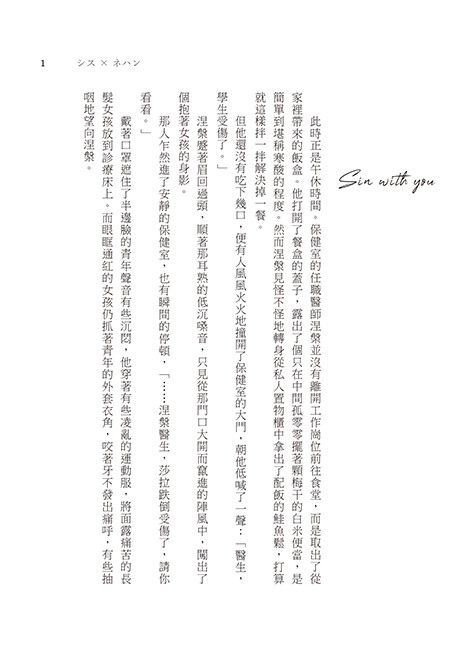 1
シス × ネハン
Sin with you
此時正是午休時間。保健室的任職醫師涅槃並沒有離開工作崗位前往食堂,而是取出了從
家裡帶來的飯盒。他打開了餐盒的蓋子,露出了個只在中間孤零零擺著顆梅干的白米便當,是
簡單到堪稱寒酸的程度。然而涅槃見怪不怪地轉身從私人置物櫃中拿出了配飯的鮭魚鬆,打算
就這樣拌一拌解決掉一餐。
但他還沒有吃下幾口,便有人風風火火地撞開了保健室的大門,朝他低喊了一聲:「醫生,
學生受傷了。」
涅槃蹙著眉回過頭,順著那耳熟的低沉嗓音,只見從那門口大開而竄進的陣風中,闖出了
個抱著女孩的身影。
那人乍然進了安靜的保健室,也有瞬間的停頓,「……涅槃醫生,莎拉跌倒受傷了,請你
看看。」
戴著口罩遮住了半邊臉的青年聲音有些沉悶,他穿著有些凌亂的運動服,將面露痛苦的長
髮女孩放到診療床上。而眼眶通紅的女孩仍抓著青年的外套衣角,咬著牙不發出痛呼,有些抽
咽地望向涅槃。